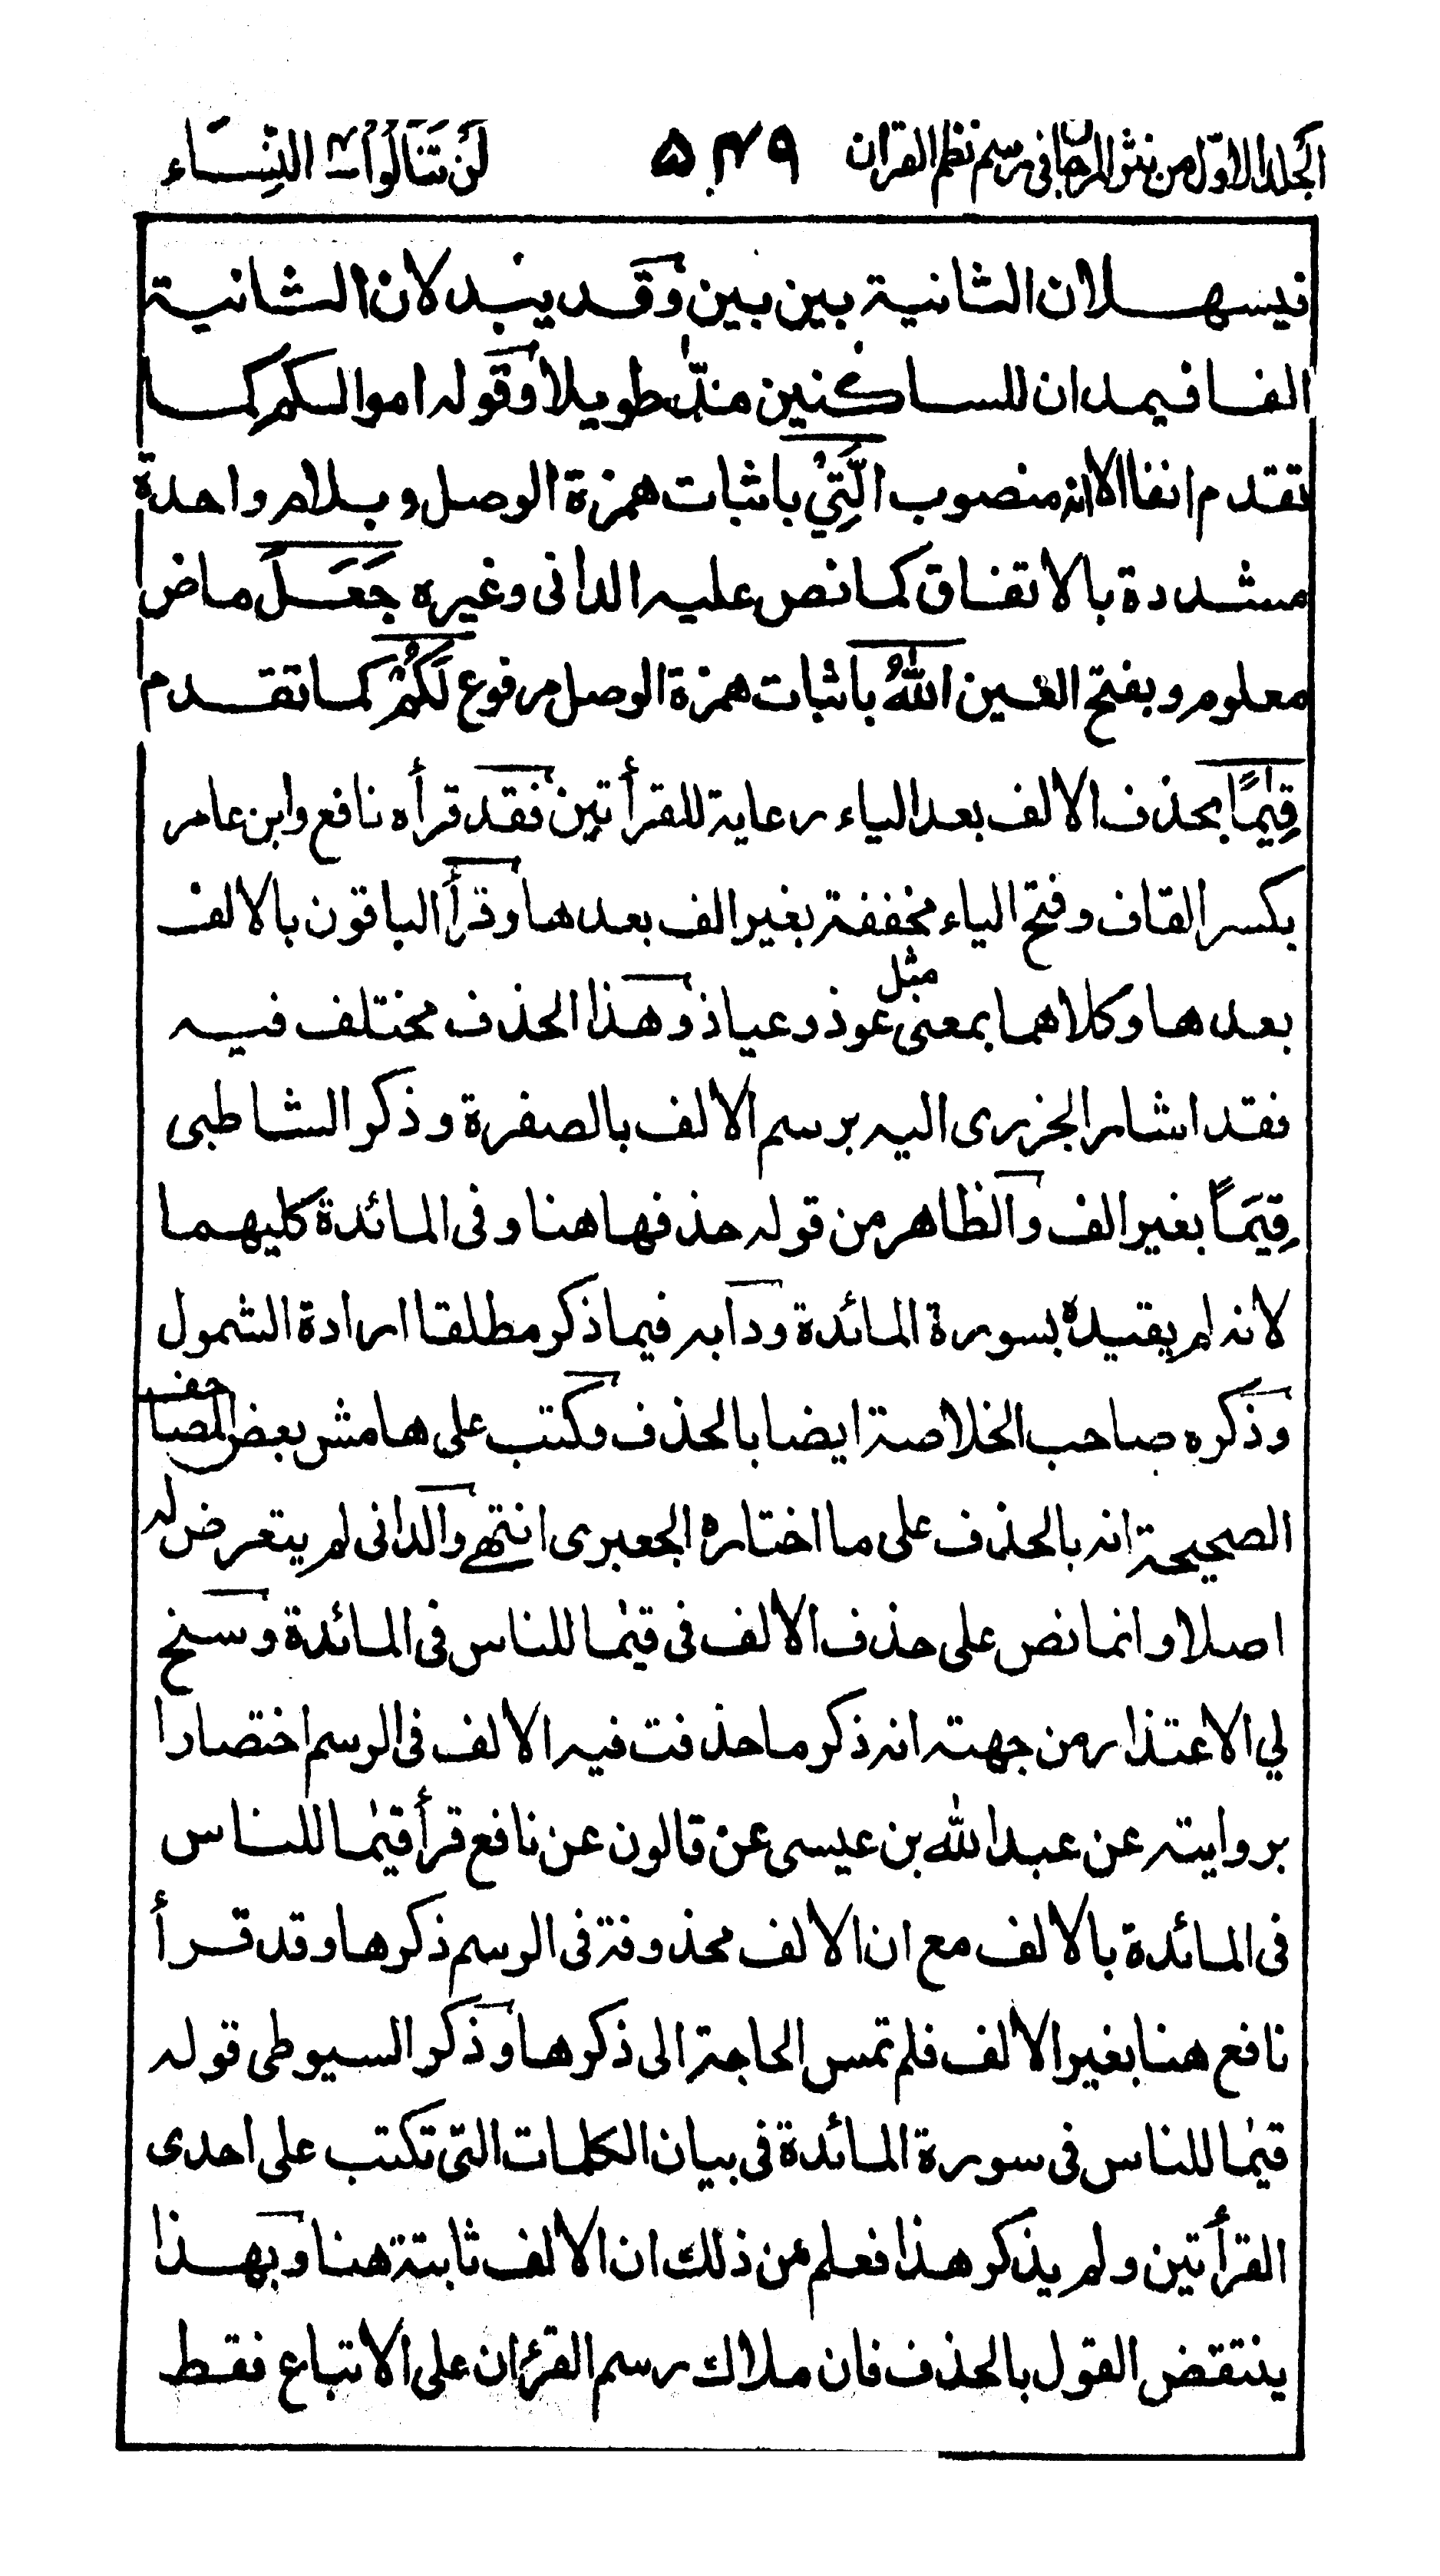 الجلد الاول من نثر المرجان فى رسم نظم القران ۵۴۹ لَنْ تَنَالُوا۴ النِّسَاء
فيسهلان الثانية بين بين وقد يبدلان الثانية
الفا فيمدان للساكنين مدّا طويلا وقوله اموالكم كما
تقدم انفا الا انه منصوب الَّتِيْ باثبات همزة الوصل وبلام واحدة
مشددة بالاتفاق كما نص عليه الدانى وغيره جَعَلَ ماض
معلوم وبفتح العين اللّٰهُ باثبات همزة الوصل مرفوع لَكُمْ كما تقدم
قِيٰمًا بحذف الالف بعد الياء رعاية للقرأتين فقد قرأه نافع وابن عامر
بكسر القاف وفتح الياء مخففة بغير الف بعدها وقرأ الباقون بالالف
بعدها وكلاهما بمعنى مثل عوذ وعياذ وهذا الحذف مختلف فيه
فقد اشار الجزرى اليه برسم الالف بالصفرة وذكر الشاطبى
قِيَمًا بغير الف والظاهر من قوله حذفها هنا وفى المائدة كليهما
لانه لم يقيده بسورة المائدة ودابه فيما ذكر مطلقا ارادة الشمول
وذكره صاحب الخلاصة ايضا بالحذف وكتب على هامش بعض المصاحف
الصحيحة انه بالحذف على ما اختاره الجعبرى انتهى والدانى لم يتعرض له
اصلا وانما نص على حذف الالف فى قيٰما للناس فى المائدة وسنح
لي الاعتذار من جهته انه ذكر ما حذفت فيه الالف فى الرسم اختصارا
بروايته عن عبد الله بن عيسى عن قالون عن نافع قرأ قيٰما للناس
فى المائدة بالالف مع ان الالف محذوفة فى الرسم ذكرها وقد قرأ
نافع هنا بغير الالف فلم تمس الحاجة الى ذكرها وذكر السيوطى قوله
قيٰما للناس فى سورة المائدة فى بيان الكلمات التى تكتب على احدى
القرأتين ولم يذكر هذا فعلم من ذلك ان الالف ثابتة هنا وبهذا
ينتقض القول بالحذف فان ملاك رسم القرٰان على الاتباع فقط